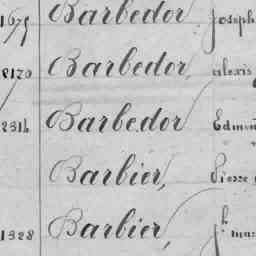 1675 Barbedor Joseph
8170 Barbedor, alexis
2314 Barbedor Edmon
Barbier, Pierre
1328 Barbier,